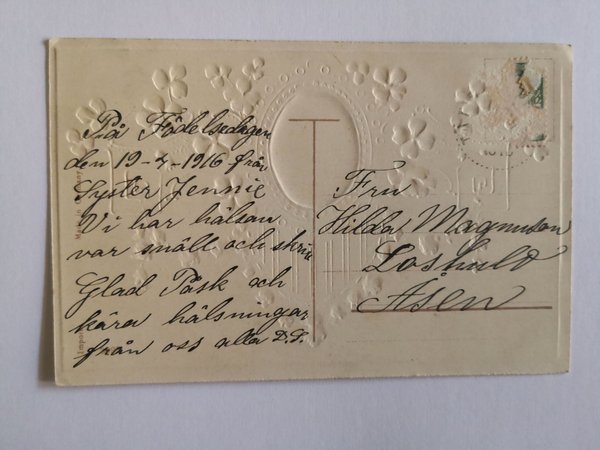 På Födelsedagen
den 19-4-1916 från
Syster Jennie
Vi har hälsan
var snäll och skriv
Glad Påsk och
kära hälsningar
från oss alla D.S.
Fru
Hilda Magnuson
Loshult
Åsen